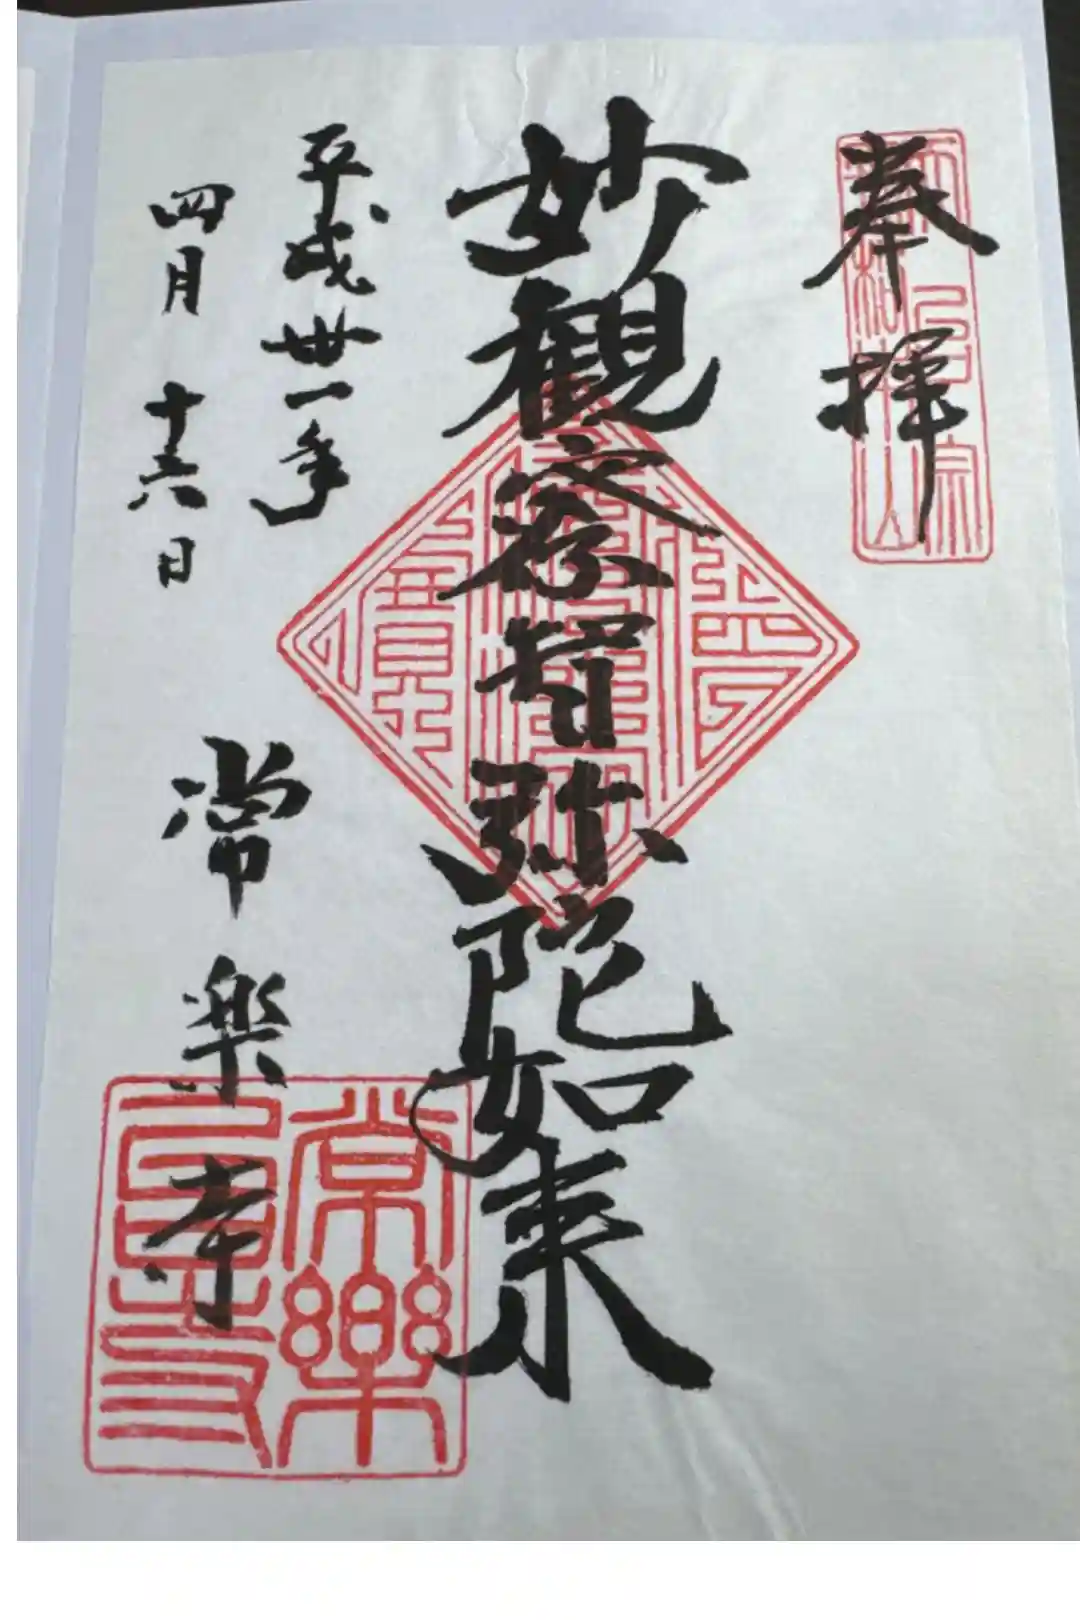 奉拝
妙観察智弥陀如来
平成卅一年
四月十六日
常楽寺
常樂